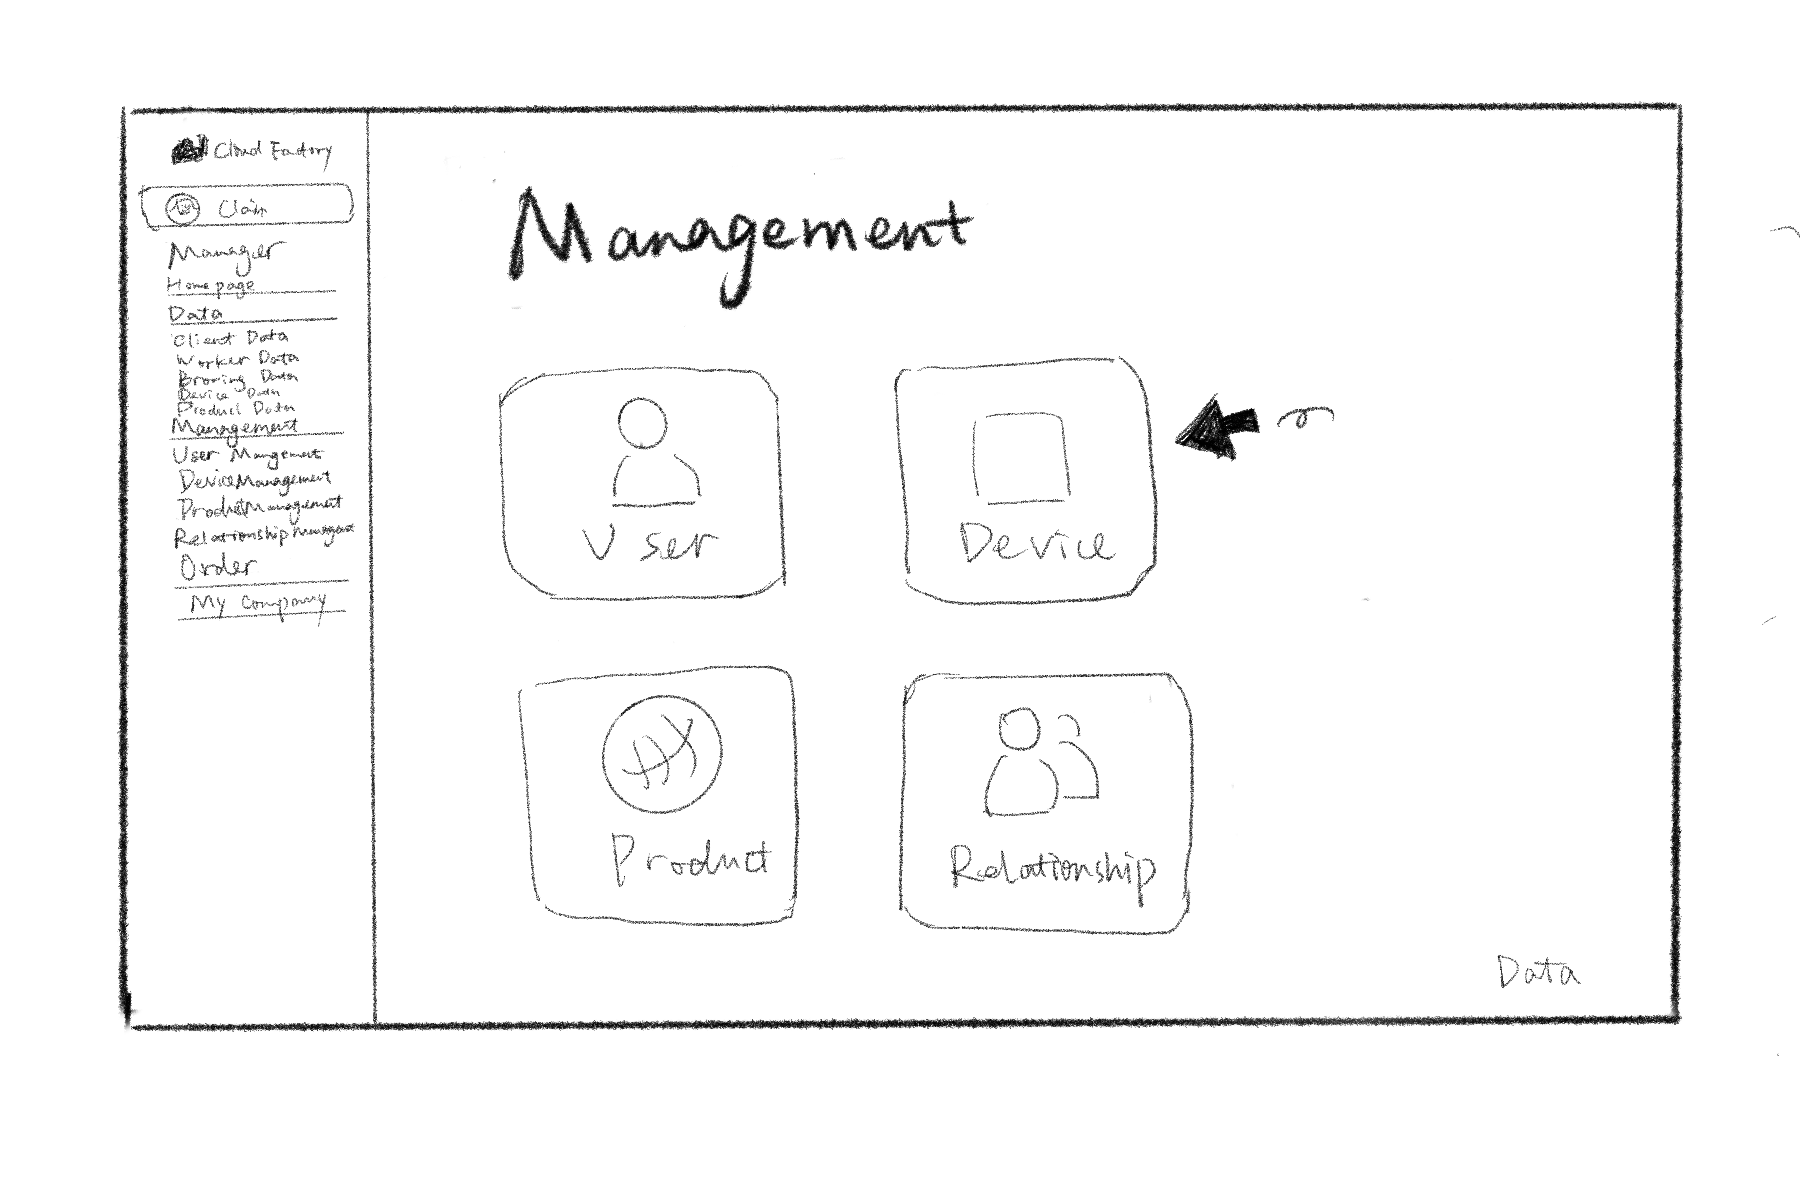 Cloud Factory
Clair
Manager
Home page
Data
Client Data
Worker Data
Data
Device Data
Product Data
Management
User Mangement
Device Management
Product Management
Relationship
Order
My Company
Management
User
Device
Product
Relationship
Data